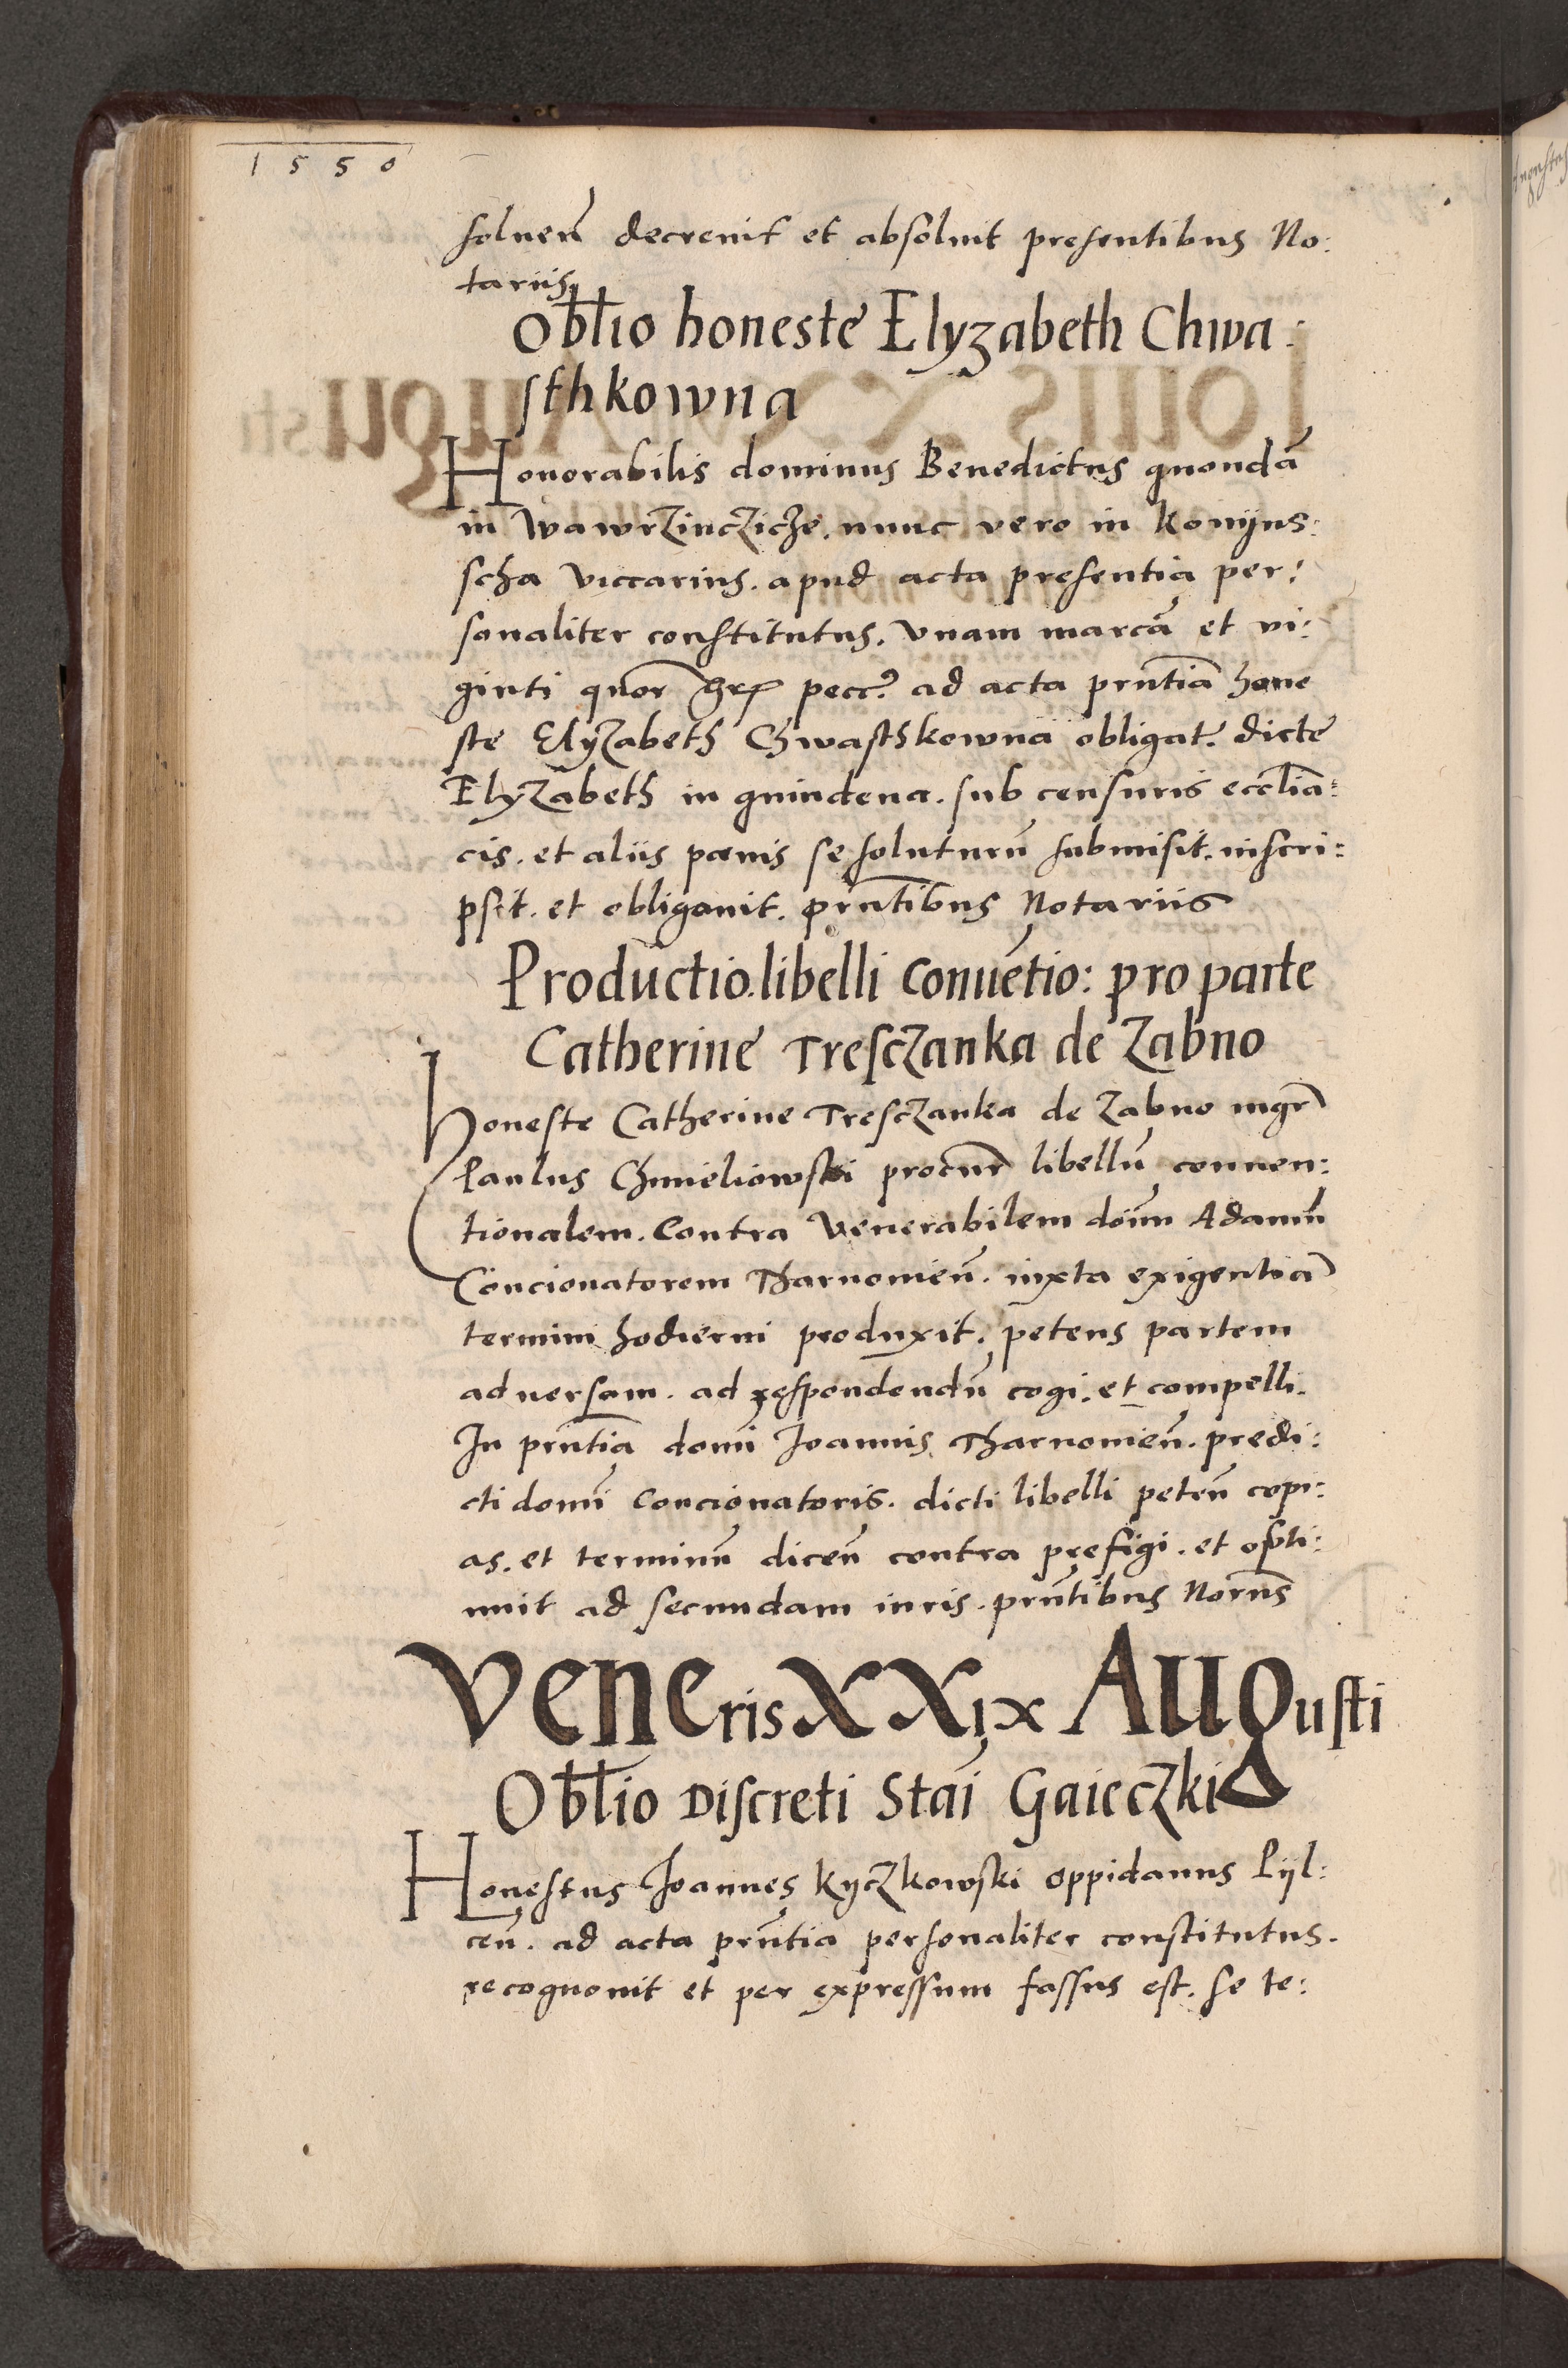 1550
soluen̄ decreuit et absoluit presentibus No:
tariis
Obl̄io honeste Elyzabeth Chwa:
sthkowna
Honorabilis dominus Benedictus quondā
in Wawrzincziche. nunc vero in Konyus:
scha viccarius. apud acta presentia per:
sonaliter constitutus. Vnam marcā et vi:
ginti quor pecc. ad acta prn̄tia hone
ste Elyzabeth Chwasthkowna obligat. dicte
Elyzabeth in quindena. sub censuris eccl̄ia:
cis. et aliis penis se soluturū submisit. inscri:
psit. et obligauit. prn̄tibus Notariis
Productio libelli conuētio: pro parte
Catherine Tresczanka de Zabno
honeste Catherine Tresczanka de Zabno mgr̄
Paulus Chmieliowski procur̄ libellū conuen:
tionalem. Contra Venerabilem dōim Adamū
Concionatorem Tharnouien̄. iuxta exigentiā
termini hodierni produxit. petens partem
aduersam. ad respondendū cogi. et compelli.
In prn̄tia domī Joannis Tharnouien̄. predi:
cti domī Concionatoris. dicti libelli peten̄ copi:
as. et terminū dicen̄ contra prefigi. et opti:
nuit ad secundam iuris. prn̄tibus Norus̄
Veneris XXix Augusti
Obl̄io Discreti Stāi Gaieczki
Honestus Joannes Kyczkowski oppidanus Pijl:
cen̄. ad acta prn̄tia personaliter constitutus.
recognouit et per expressum fassus est. se te: